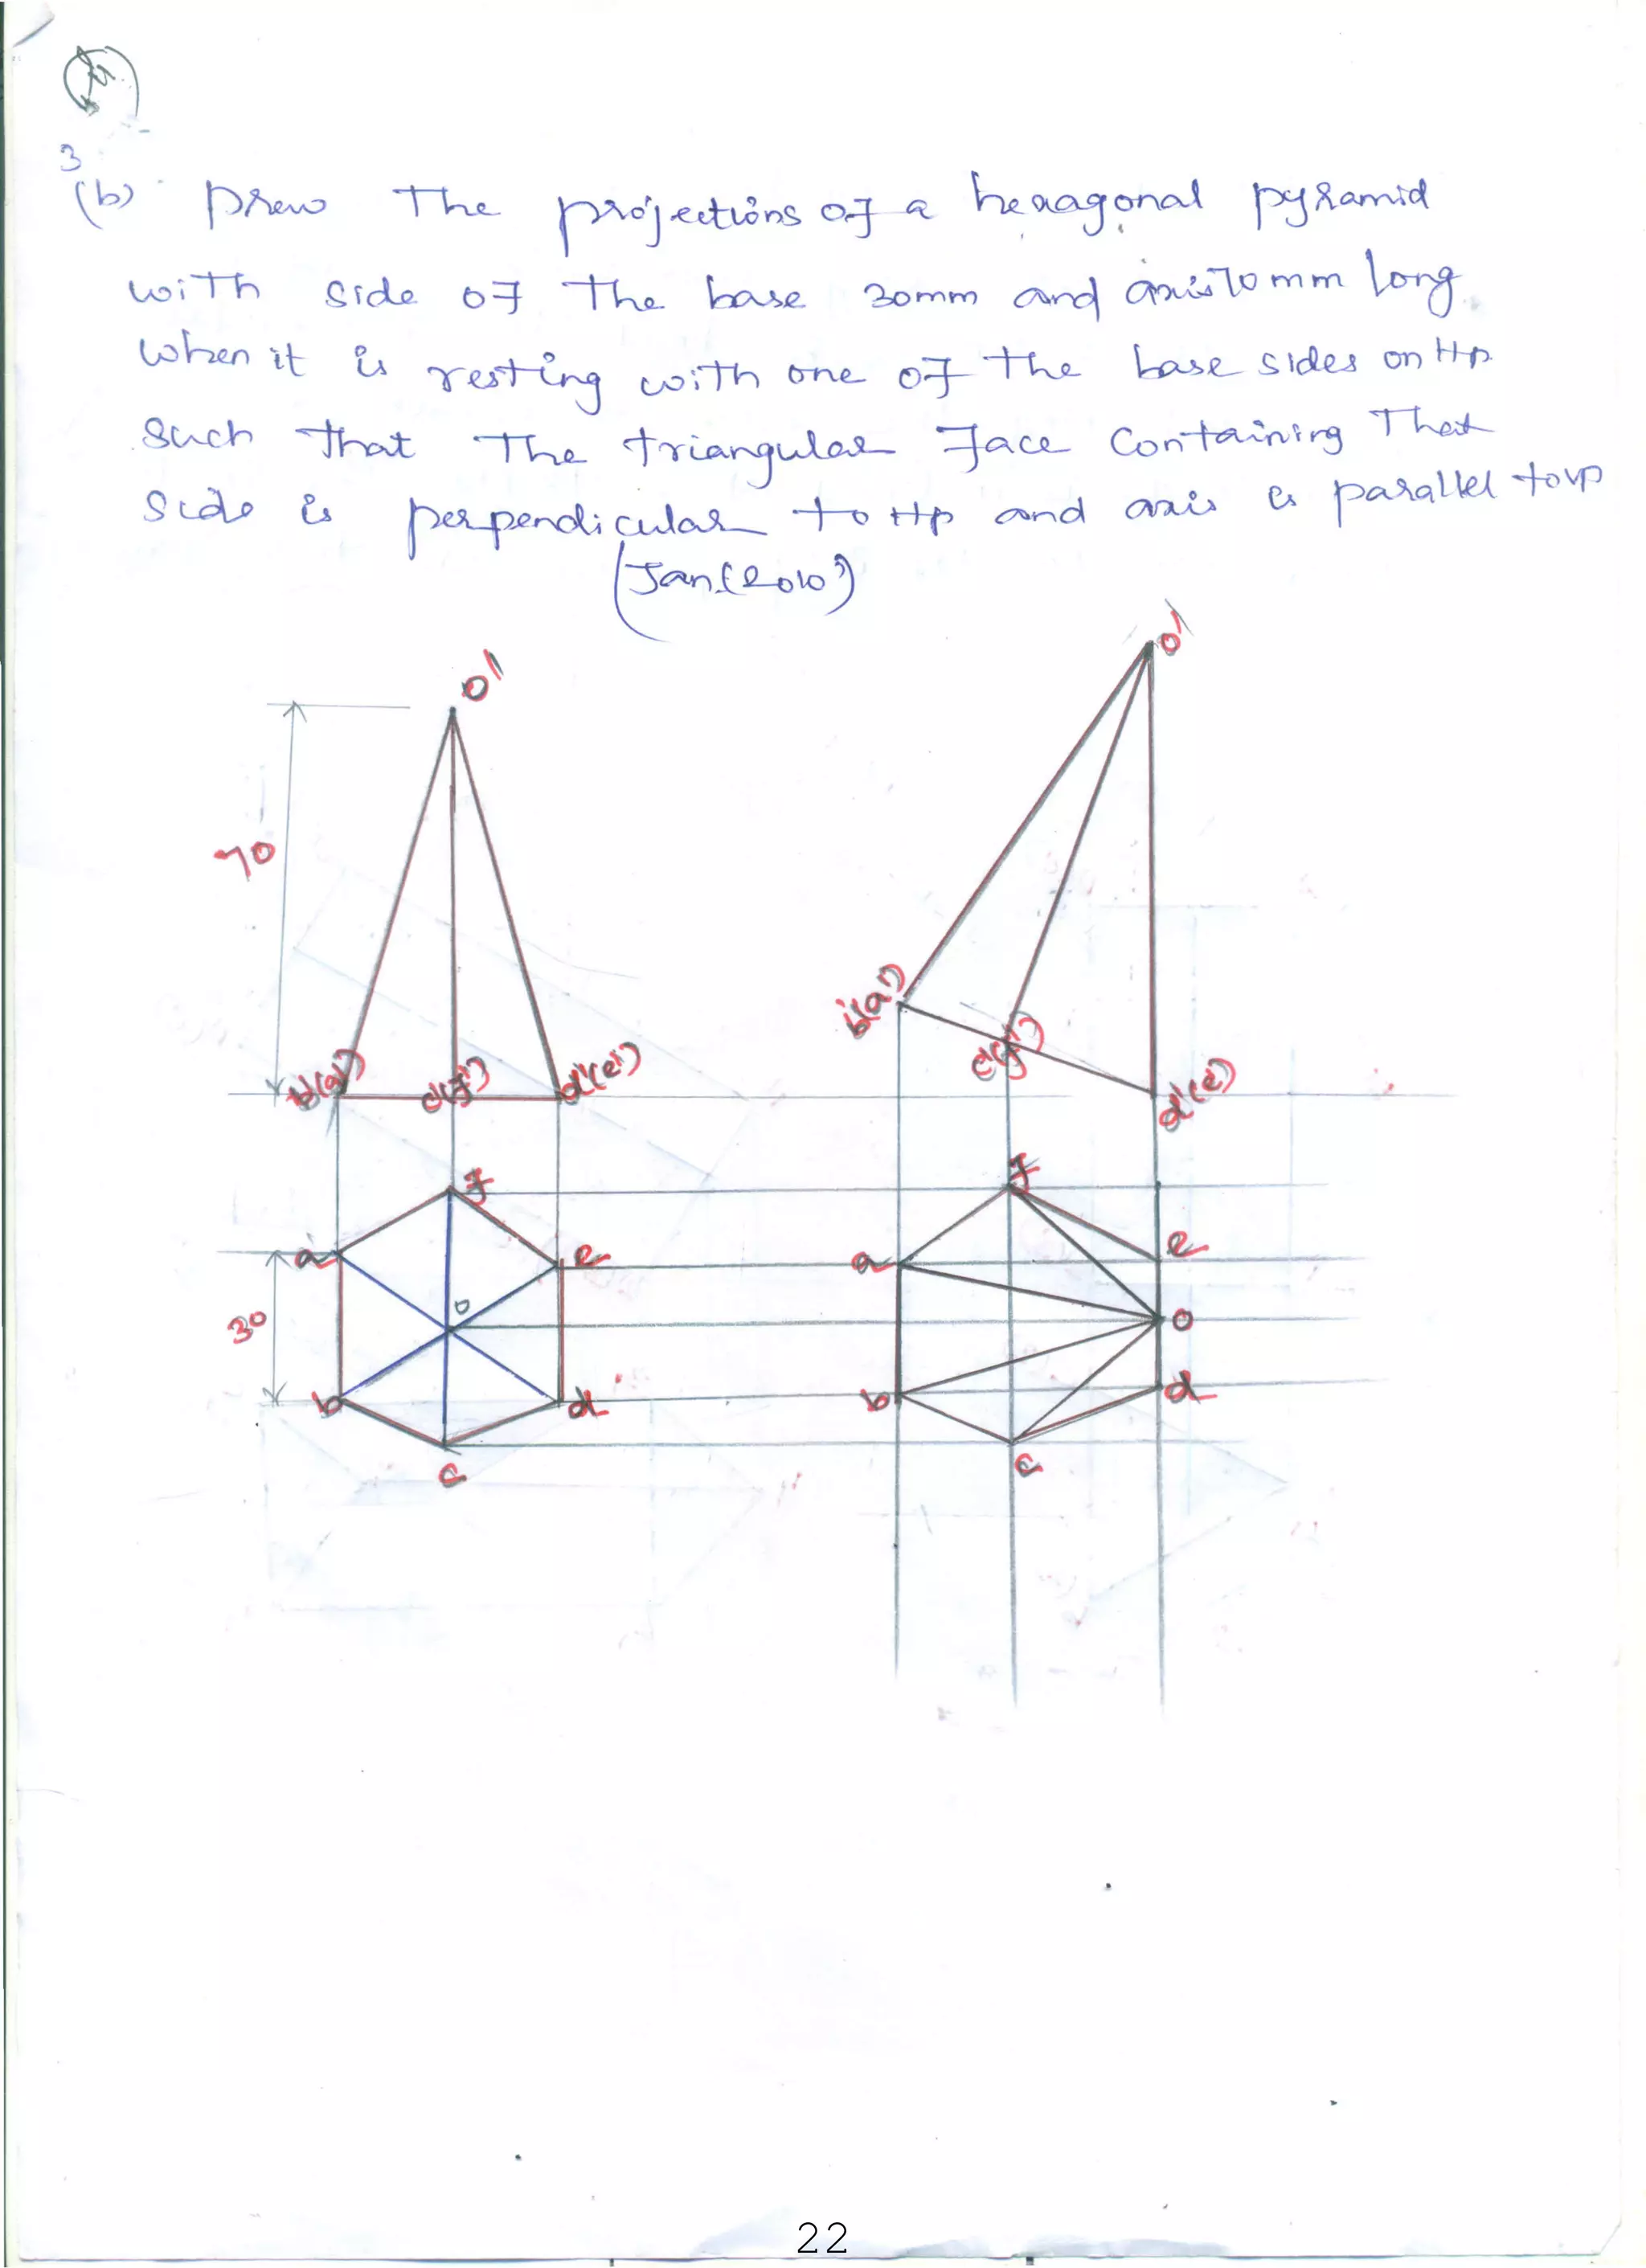 3
(b) Draw The projections of a hexagonal pyramid
with side of the base 30mm and axis 70 mm long
when it is resting with one of the base sides on Hp
such that The triangular face containing That
side is perpendicular to Hp and axis is parallel to vp
(Jan(2010)
o'
o'
70
b'(a')
b'(a')
c'(f')
d'(e')
c'(f')
d'(e')
f
f
a
e
a
e
30
o
o
b
d
b
d
c
c
22